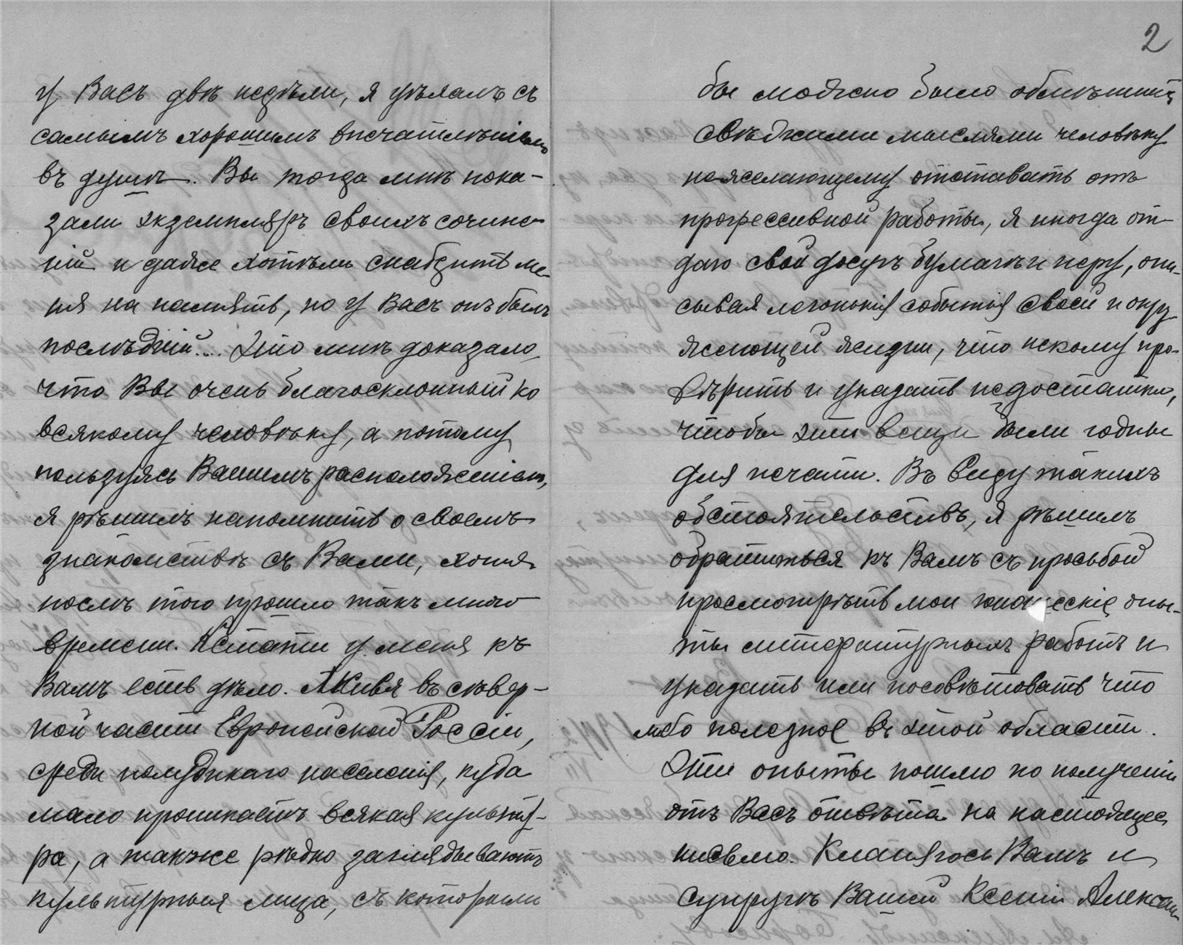 у Васъ двѣ недѣли, я уѣхалъ съ
самымъ хорошимъ впечатлѣніемъ
въ душѣ. Вы тогда мнѣ пока-
зали экземпляръ своихъ сочине-
ній и даже хотѣли снабдить ме-
ня на память, но у Васъ онъ былъ
послѣдній... Это мнѣ доказало,
что Вы очень благосклонный ко
всякому человѣку, а потому
пользуясь Вашимъ расположеніемъ,
я рѣшилъ напомнить о своемъ
знакомствѣ съ Вами, хотя
послѣ того прошло такъ много
времени. Кстати у меня къ
Вамъ есть дѣло. Живя въ сѣвер-
ной части Европейской Россіи,
среди полудикаго населенія, куда
мало проникаетъ всякая культу-
ра, а также рѣдко заглядываютъ
культурныя лица, съ которыми
2
бы можно было обмѣнить
свѣжими мыслями человѣку
нежелающему отставать отъ
прогрессивной работы, я иногда от-
даю свой досугъ бумагѣ и перу, опи-
сывая легонькія событія своей и окру
жающей жизни, что некому про-
вѣрить и указать недостатки,
чтобы эти вещи были годны
для печати. Въ виду такихъ
обстоятельствъ, я рѣшилъ
обратиться къ Вамъ съ просьбой
просмотрѣть мои юношескіе опы-
ты литературныхъ работъ и
указать или посовѣтовать что
либо полезное въ этой области.
Эти опыты пошлю по полученіи
отъ Васъ отвѣта на настоящее
письмо. Кланяюсь Вамъ и
супругѣ Вашей Ксеніи Алексан-